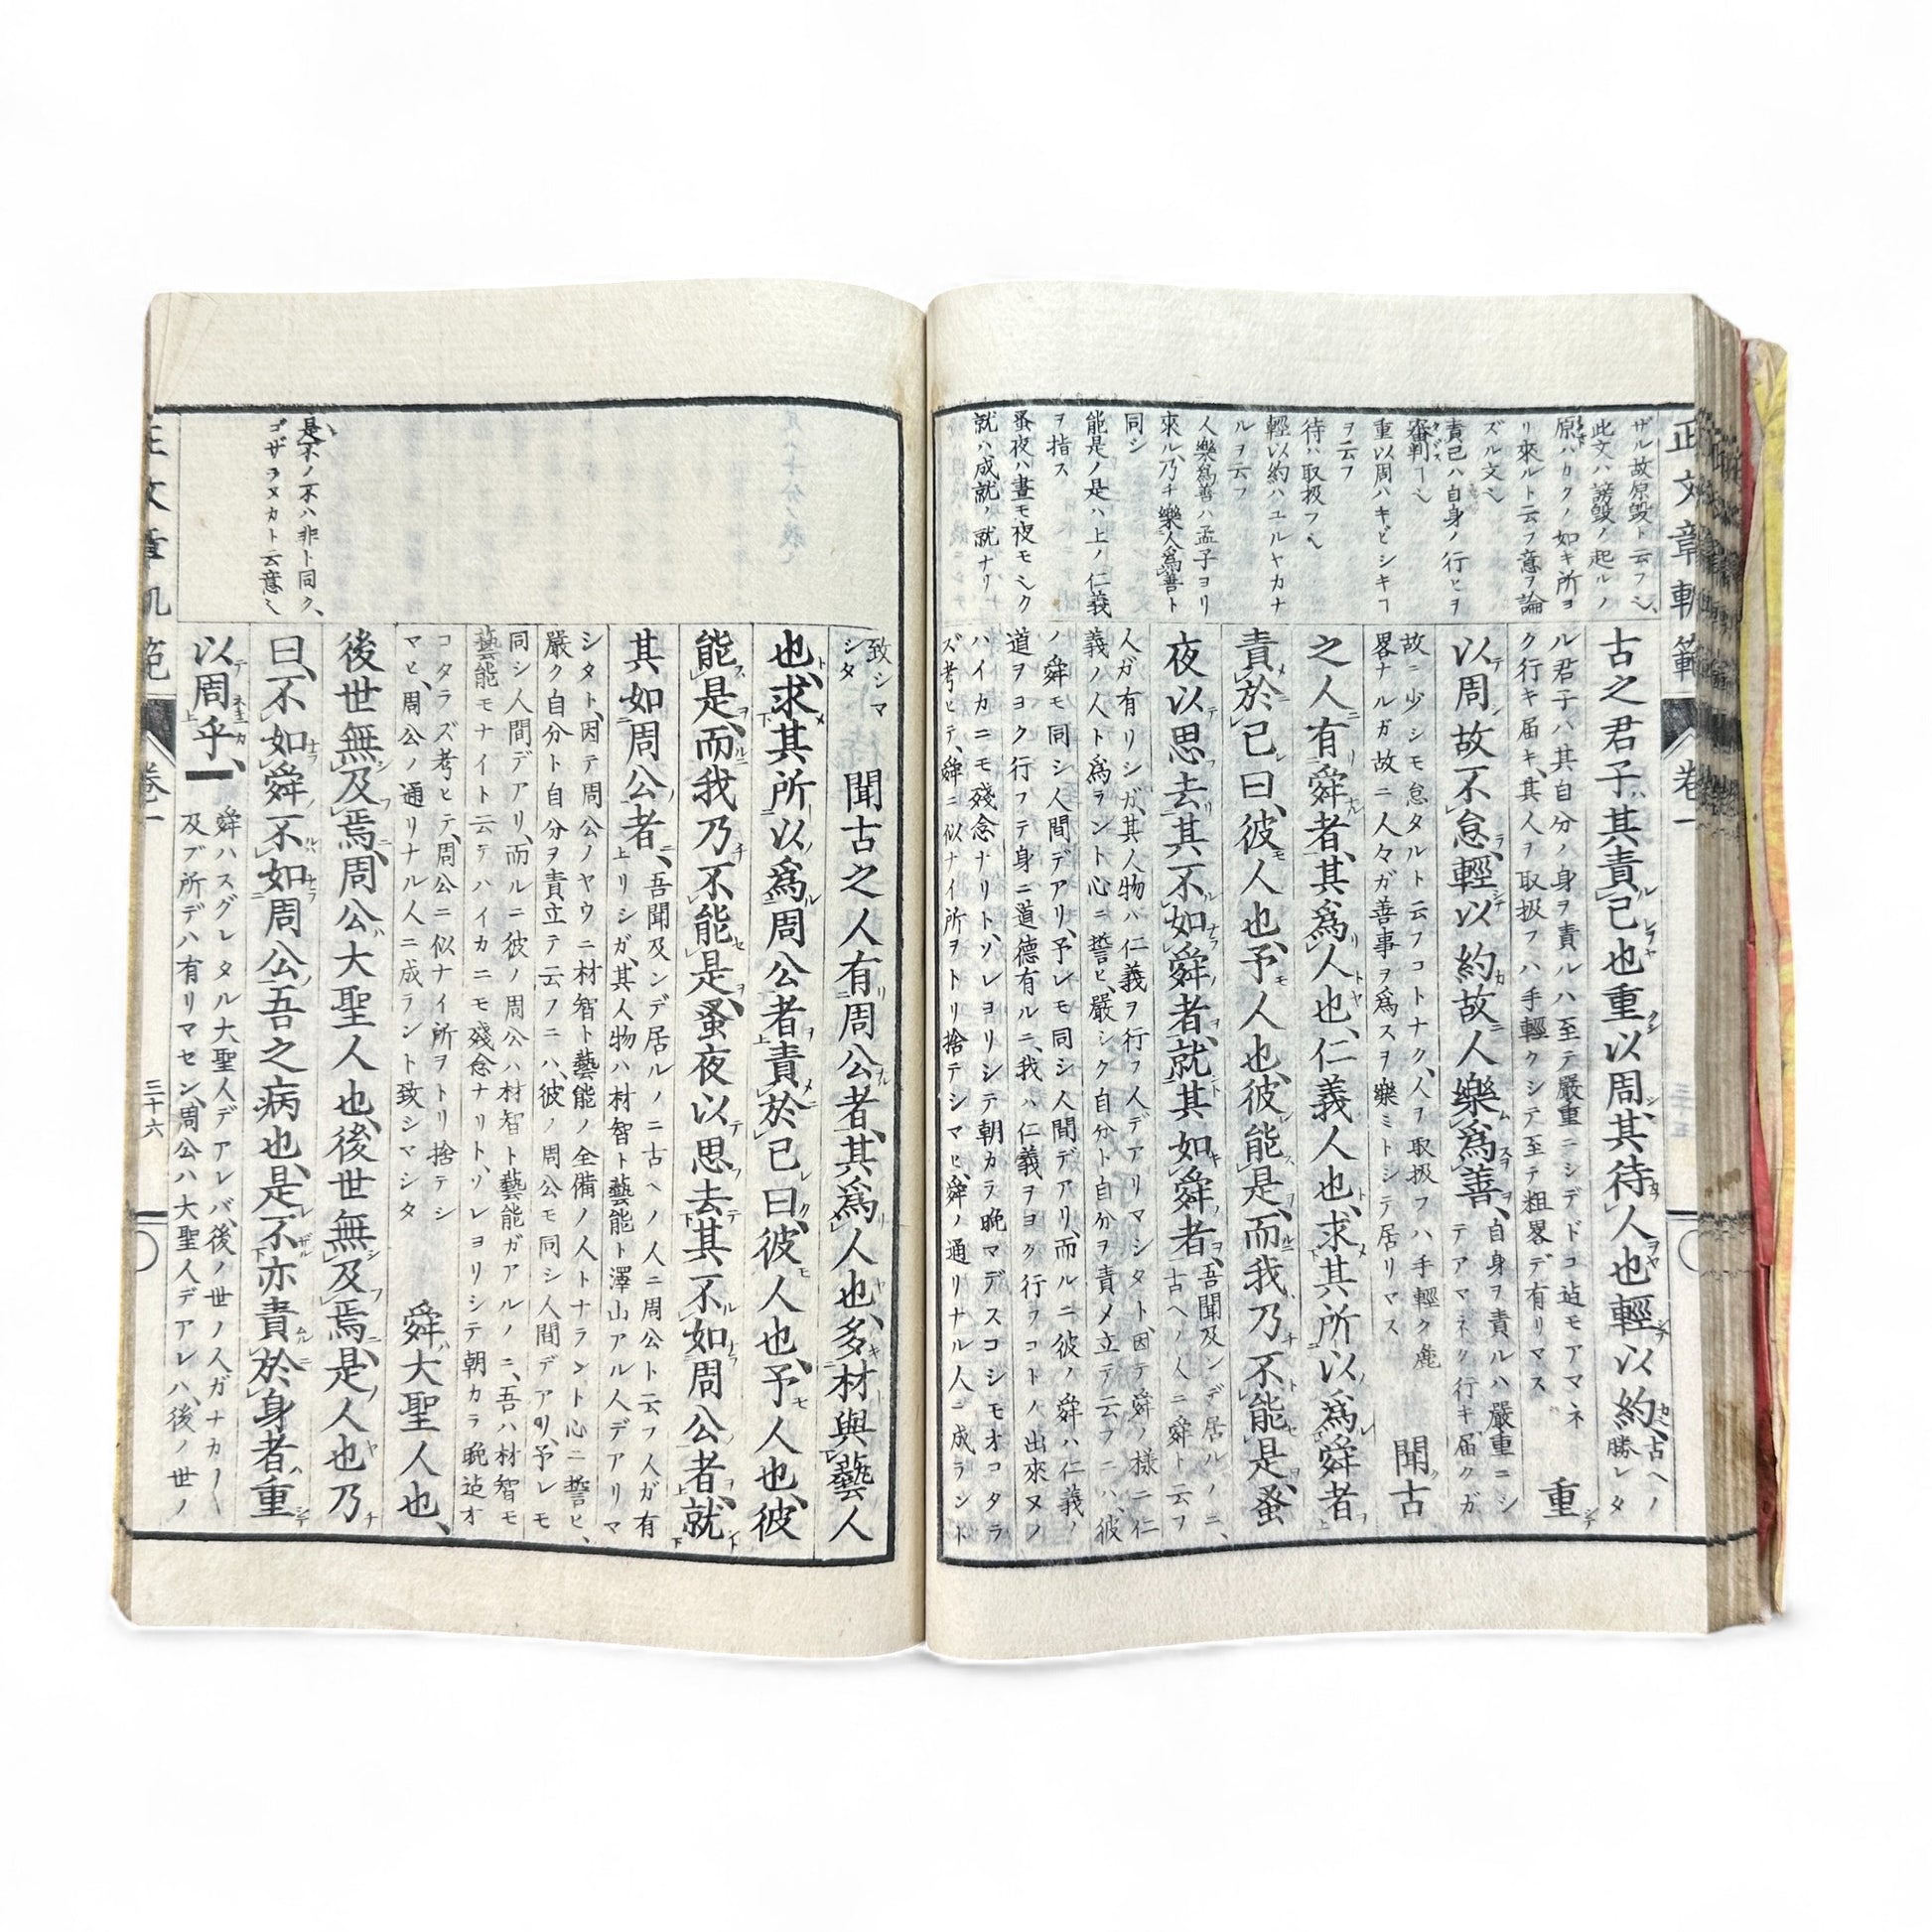 正文章軌範 卷一
ザル故原毀ト云フ乀、
此文ハ謗毀ノ起ルノ
原ハカクノ如キ所ヨ
リ來ルト云フ意ヲ論
ズル文乀
責己ハ自身ノ行ヒヲ
審判ー乀
重以周ハキビシキヿ
ヲ云フ
待ハ取扱フ乀
輕以約ハユルヤカナ
ルヲ云フ
人樂爲善ハ孟子ヨリ
來ル、乃チ樂人爲善ト
同シ
能是ノ是ハ上ノ仁義
ヲ指ス
蚤夜ハ晝モ夜モ乀ク
就ハ成就ノ就ナリ
古之君子、其責己也重以周、其待人也輕以約、古ヘノ勝レタ
ル君子ハ其自分ノ身ヲ責ルハ至テ嚴重ニシデドコ迠モアマネ
ク行キ届キ、其人ヲ取扱フハ手輕クシテ至テ粗畧デ有リマス 重
以周故不怠、輕以約故人樂爲善、自身ヲ責ルハ嚴重ニシテアマネク行キ届クガ
故ニ少シモ怠タルト云フコトナク、人ヲ取扱フハ手輕ク麁
畧ナルガ故ニ人々ガ善事ヲ爲スヲ樂ミトシテ居リマス 聞古
之人有舜者、其爲人也、仁義人也、求其所以爲舜者
責於己曰、彼人也、予人也、彼能是、而我乃不能是、蚤
夜以思、去其不如舜者、就其如舜者、吾聞及ンデ居ルノニ、古ヘノ人ニ舜ト云フ
人ガ有リシガ、其人物ハ仁義ヲ行フ人デアリマシタト、因テ舜ノ様ニ仁
義ノ人ト爲ラント心ニ誓ヒ、嚴シク自分ト自分ヲ責メ立テ云フニハ、彼
ノ舜モ同シ人間デアリ、予レモ同シ人間デアリ、而ルニ彼ノ舜ハ仁義ノ
道ヲヨク行フテ身ニ道德有ルニ、我ハ仁義ヲヨク行フコトノ出來ヌノ
ハイカニモ殘念ナリト、ソレヨリシテ朝カラ晩マデスコシモオコタラ
ズ考ヒテ、舜ニ似ナイ所ヲトリ捨テシマヒ、舜ノ通リナル人ニ成ラント
致シマ
シタ 聞古之人有周公者、其爲人也、多材與藝人
也、求其所以爲周公者責於己曰、彼人也、予人也、彼
能是、而我乃不能是、蚤夜以思去其不如周公者、就
其如周公者、吾聞及ンデ居ルノニ古ヘノ人ニ周公ト云フ人ガ有リシガ、其人物ハ材智ト藝能ト澤山アル人デアリマ
シタト、因テ周公ノヤウニ材智ト藝能ノ全備ノ人トナラント心ニ誓ヒ、
嚴ク自分ト自分ヲ責立テ云フニハ、彼ノ周公モ同シ人間デアリ、予レモ
同シ人間デアリ、而ルニ彼ノ周公ハ材智ト藝能ガアルノニ、吾ハ材智モ
藝能モナイト云テハイカニモ殘念ナリト、ソレヨリシテ朝カラ晩迠オ
コタラズ考ヒテ、周公ニ似ナイ所ヲトリ捨テシ
マヒ、周公ノ通リナル人ニ成ラント致シマシタ 舜、大聖人也、
後世無及焉、周公大聖人也、後世無及焉、是人也乃
曰、不如舜不如周公、吾之病也、是不亦責於身者重
以周乎、 舜ハスグレタル大聖人デアレバ、後ノ世ノ人ガナカ〱
及ブ所デハ有リマセン、周公ハ大聖人デアレハ、後ノ世ノ
是不ノ不ハ非ト同ク、
ゴザラヌカト云意乀
卷一
三十六